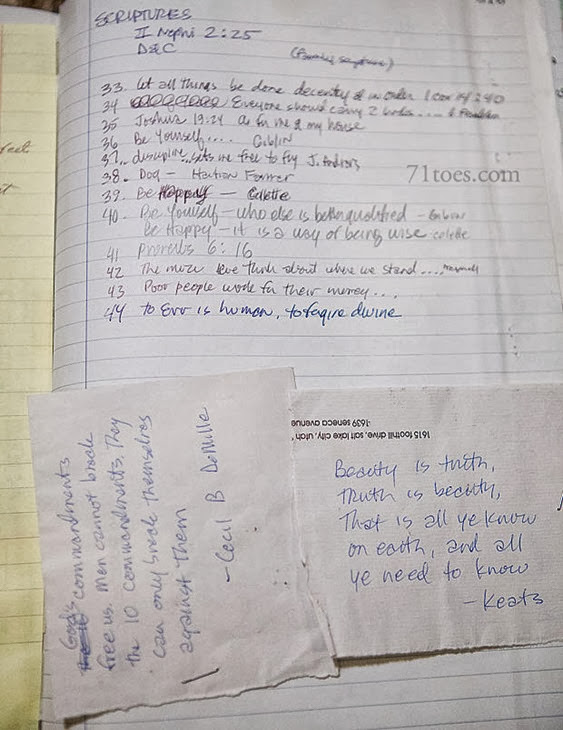 SCRIPTURES
II Nephi 2:25
D&C
33. let all things be done decently & in order 1 Cor 14:40
34 Everyone should carry 2 .... 
35 Joshua 19:24 as for me & my house
36 Be Yourself.... Giblin
37. discipline..sets me free to fly J.
38. Dog - Farrer
39. Be Happy - Colette
40. Be Yourself - who else is better qualified - Giblin
Be Happy - it is a way of being wise colette
41 Proverbs 6:16
42 The more we think about where we stand....
43 Poor people work for their money...
44 to Err is human, to forgive divine
71toes.com
God's commandments
free us. Men cannot break
the 10 commandments. They
can only break themselves
against Them
- Cecil B DeMille
1615 foothill drive, salt lake city, utah
1639 seneca avenue
Beauty is truth,
Truth is beauty,
That is all ye know
on earth, and all
ye need to know
- Keats